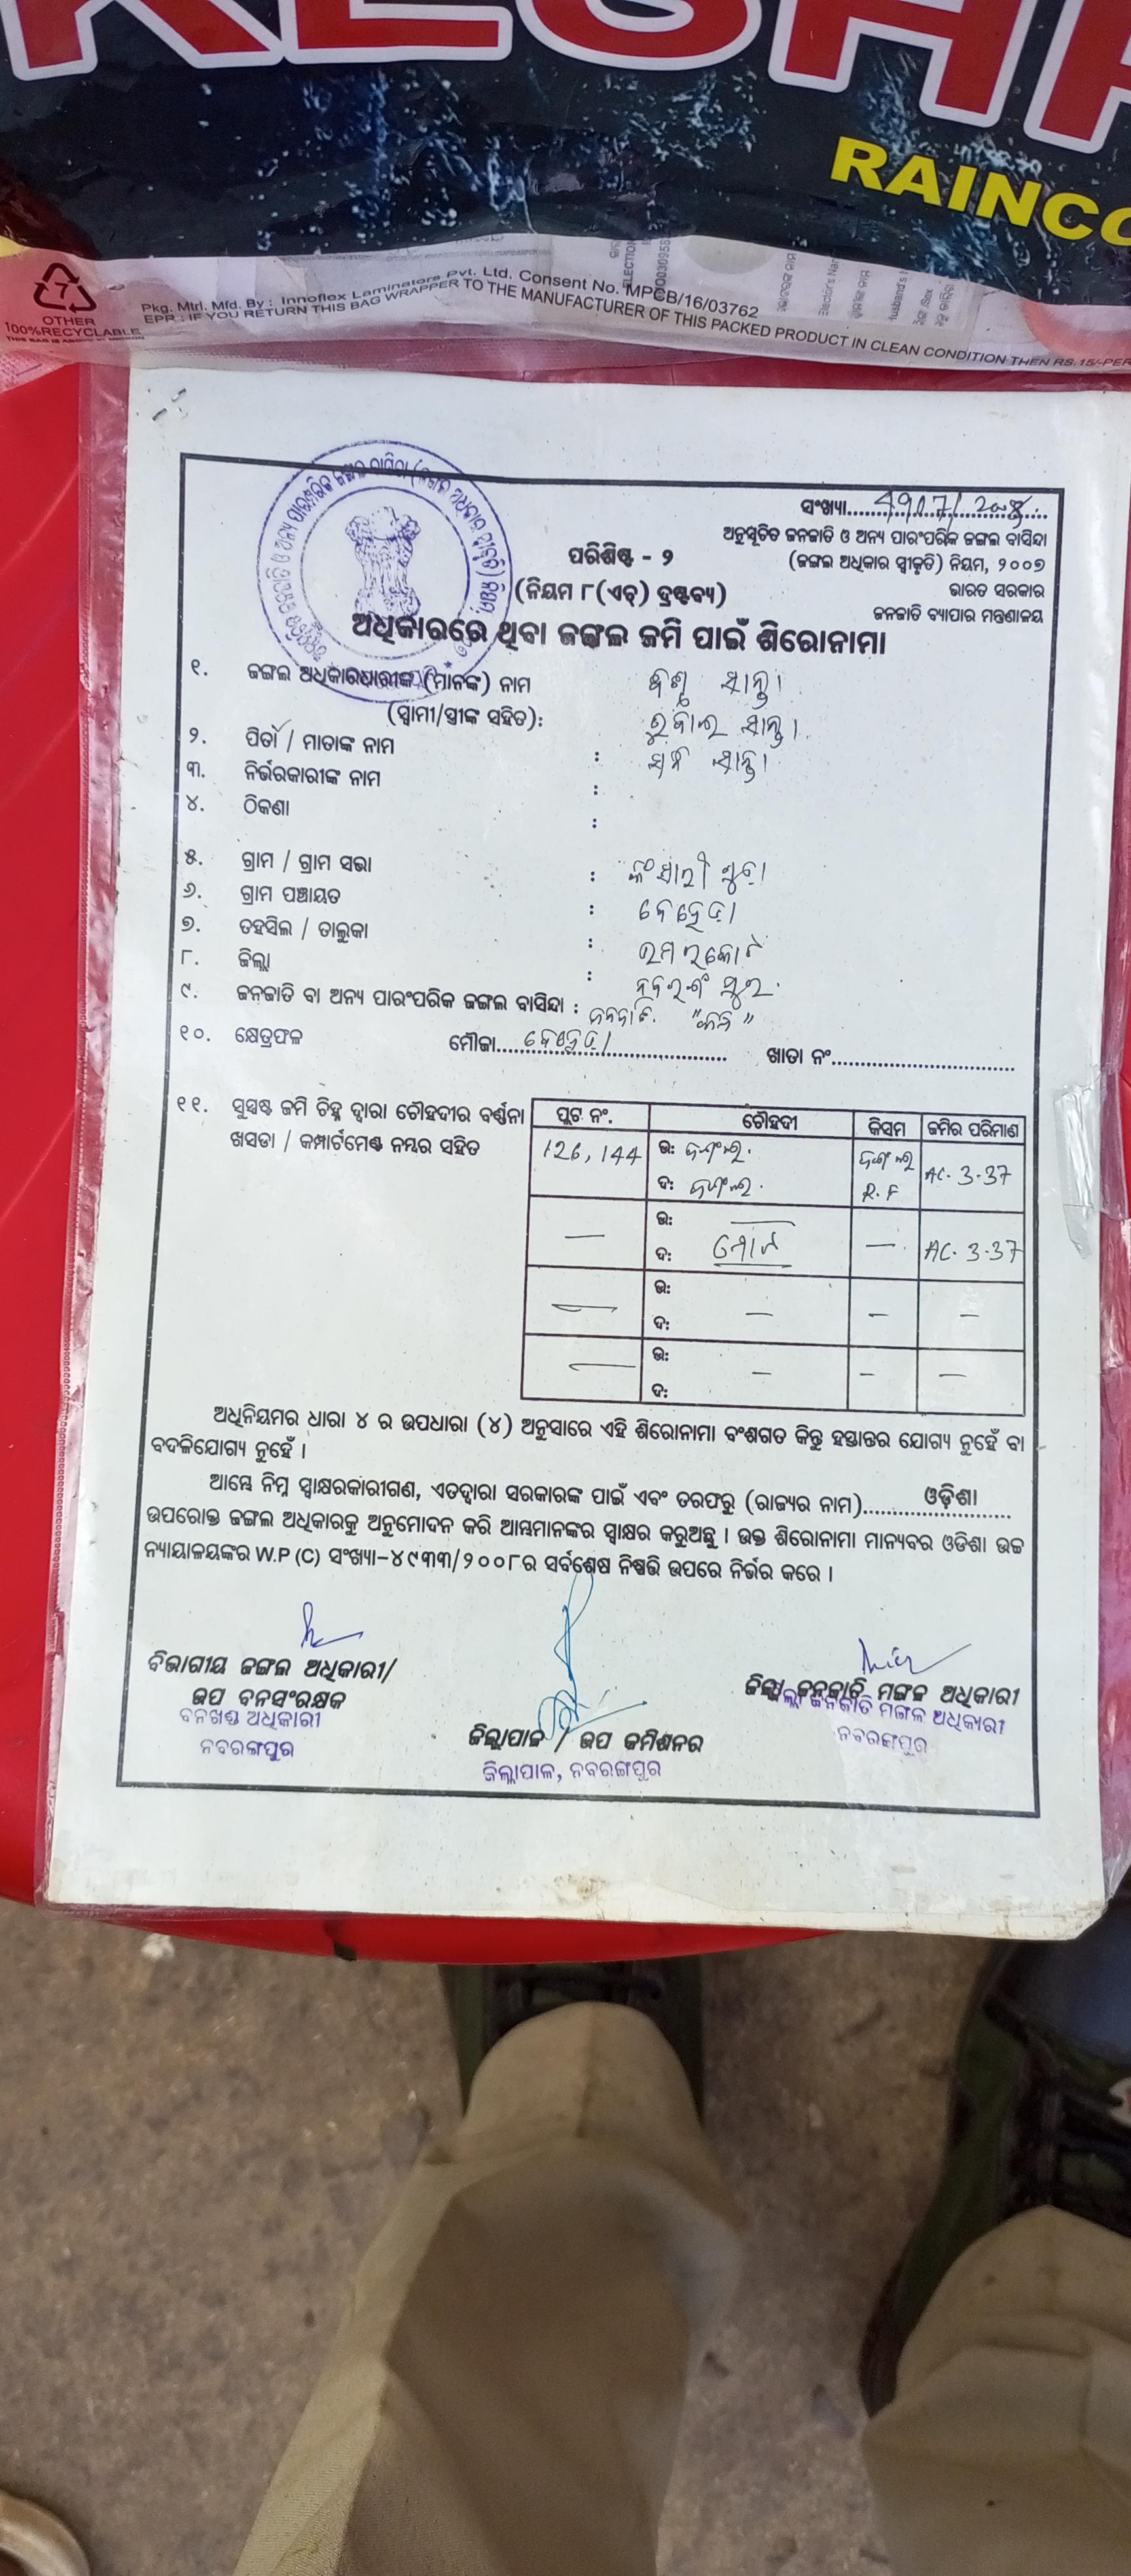 RAINCO
OTHER
100%RECYCLABLE
Pkg. Mtrl. Mfd. By : Innoflex Laminators Pvt. Ltd. Consent No. MPCB/16/03762
EPR : IF YOU RETURN THIS BAG WRAPPER TO THE MANUFACTURER OF THIS PACKED PRODUCT IN CLEAN CONDITION THEN RS.15/-PER
ସଂଖ୍ୟା
ଅନୁସୂଚିତ ଜନଜାତି ଓ ଅନ୍ୟ ପାରଂପରିକ ଜଙ୍ଗଲ ବାସିନ୍ଦା
ପରିଶିଷ୍ଟ - ୨
(ଜଙ୍ଗଲ ଅଧିକାର ସ୍ୱୀକୃତି) ନିୟମ, ୨୦୦୭
(ନିୟମ ୮(ଏଚ୍) ଦ୍ରଷ୍ଟବ୍ୟ)
ଭାରତ ସରକାର
ଜନଜାତି ବ୍ୟାପାର ମନ୍ତ୍ରଣାଳୟ
ଅଧିକାରରେ ଥିବା ଜଙ୍ଗଲ ଜମି ପାଇଁ ଶିରୋନାମା
୧. ଜଙ୍ଗଲ ଅଧିକାରଧାରୀଙ୍କ (ମାନଙ୍କ) ନାମ
(ସ୍ୱାମୀ/ସ୍ତ୍ରୀଙ୍କ ସହିତ):
୨. ପିତା / ମାତାଙ୍କ ନାମ :
୩. ନିର୍ଭରକାରୀଙ୍କ ନାମ :
୪. ଠିକଣା :
୫. ଗ୍ରାମ / ଗ୍ରାମ ସଭା :
୬. ଗ୍ରାମ ପଞ୍ଚାୟତ : ବେହେଡା
୭. ତହସିଲ / ତାଲୁକା : ଉମରକୋଟ
୮. ଜିଲ୍ଲା : ନବରଙ୍ଗପୁର
୯. ଜନଜାତି ବା ଅନ୍ୟ ପାରଂପରିକ ଜଙ୍ଗଲ ବାସିନ୍ଦା : ଜନଜାତି
୧୦. କ୍ଷେତ୍ରଫଳ ମୌଜା ବେହେଡା ଖାତା ନଂ
୧୧. ସୁସ୍ପଷ୍ଟ ଜମି ଚିହ୍ନ ଦ୍ୱାରା ଚୌହଦୀର ବର୍ଣ୍ଣନା
ଖସଡା / କମ୍ପାର୍ଟମେଣ୍ଟ ନମ୍ବର ସହିତ
ପ୍ଲଟ ନଂ. ଚୌହଦୀ କିସମ ଜମିର ପରିମାଣ
126, 144 ଉ: ଜଙ୍ଗଲ ଜଙ୍ଗଲ AC. 3.37
ଦ: ଜଙ୍ଗଲ R.F
ଉ:
— ଦ: ମୋଟ — AC. 3.37
ଉ:
— ଦ: — — —
ଉ:
— ଦ: — — —
ଅଧିନିୟମର ଧାରା ୪ ର ଉପଧାରା (୪) ଅନୁସାରେ ଏହି ଶିରୋନାମା ବଂଶଗତ କିନ୍ତୁ ହସ୍ତାନ୍ତର ଯୋଗ୍ୟ ନୁହେଁ ବା
ବଦଳିଯୋଗ୍ୟ ନୁହେଁ ।
ଆମ୍ଭେ ନିମ୍ନ ସ୍ୱାକ୍ଷରକାରୀଗଣ, ଏତଦ୍ୱାରା ସରକାରଙ୍କ ପାଇଁ ଏବଂ ତରଫରୁ (ରାଜ୍ୟର ନାମ) ଓଡ଼ିଶା
ଉପରୋକ୍ତ ଜଙ୍ଗଲ ଅଧିକାରକୁ ଅନୁମୋଦନ କରି ଆମ୍ଭମାନଙ୍କର ସ୍ୱାକ୍ଷର କରୁଅଛୁ । ଉକ୍ତ ଶିରୋନାମା ମାନ୍ୟବର ଓଡିଶା ଉଚ୍ଚ
ନ୍ୟାୟାଳୟଙ୍କର W.P (C) ସଂଖ୍ୟା-୪୯୩୩/୨୦୦୮ର ସର୍ବଶେଷ ନିଷ୍ପତ୍ତି ଉପରେ ନିର୍ଭର କରେ ।
ବିଭାଗୀୟ ଜଙ୍ଗଲ ଅଧିକାରୀ/
ଉପ ବନସଂରକ୍ଷକ
ବନଖଣ୍ଡ ଅଧିକାରୀ
ନବରଙ୍ଗପୁର
ଜିଲ୍ଲାପାଳ / ଉପ କମିଶନର
ଜିଲ୍ଲାପାଳ, ନବରଙ୍ଗପୁର
ଜିଲ୍ଲା ଜନଜାତି ମଙ୍ଗଳ ଅଧିକାରୀ
ଜିଲ୍ଲା ଜନଜାତି ମଙ୍ଗଳ ଅଧିକାରୀ
ନବରଙ୍ଗପୁର